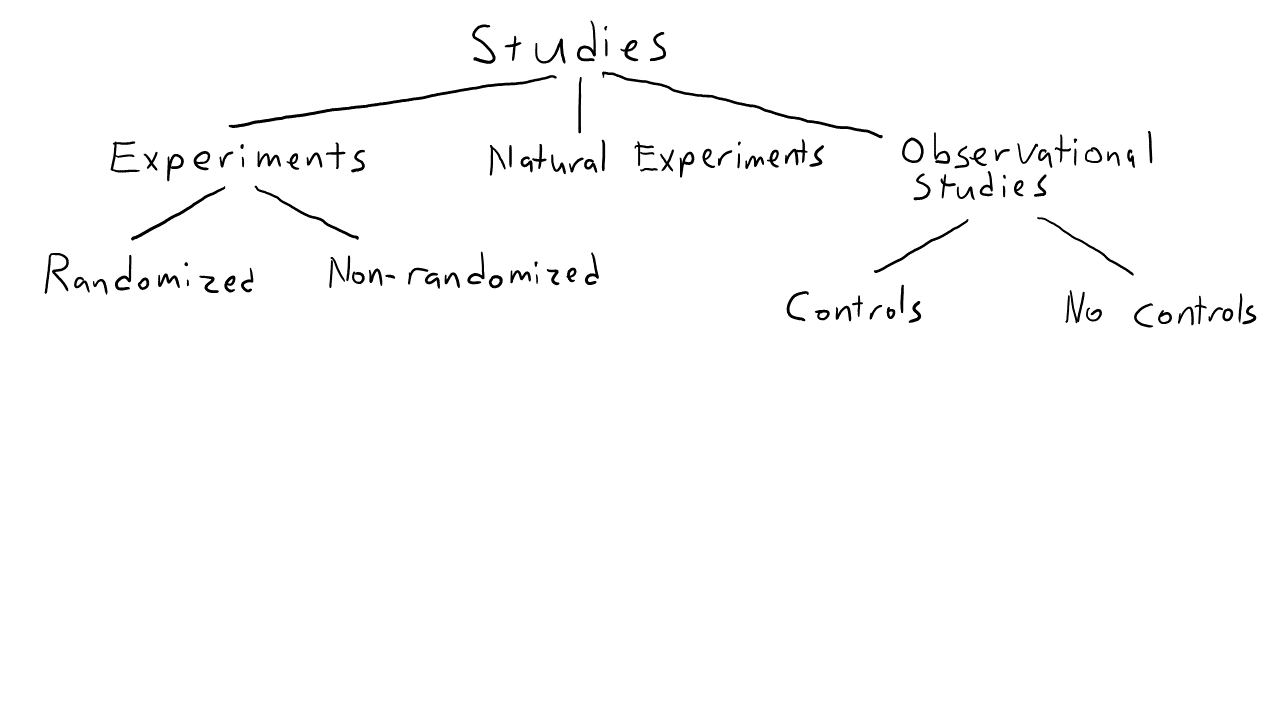 Studies
Experiments
Natural Experiments
Observational
Studies
Randomized
Non-randomized
Controls
No controls